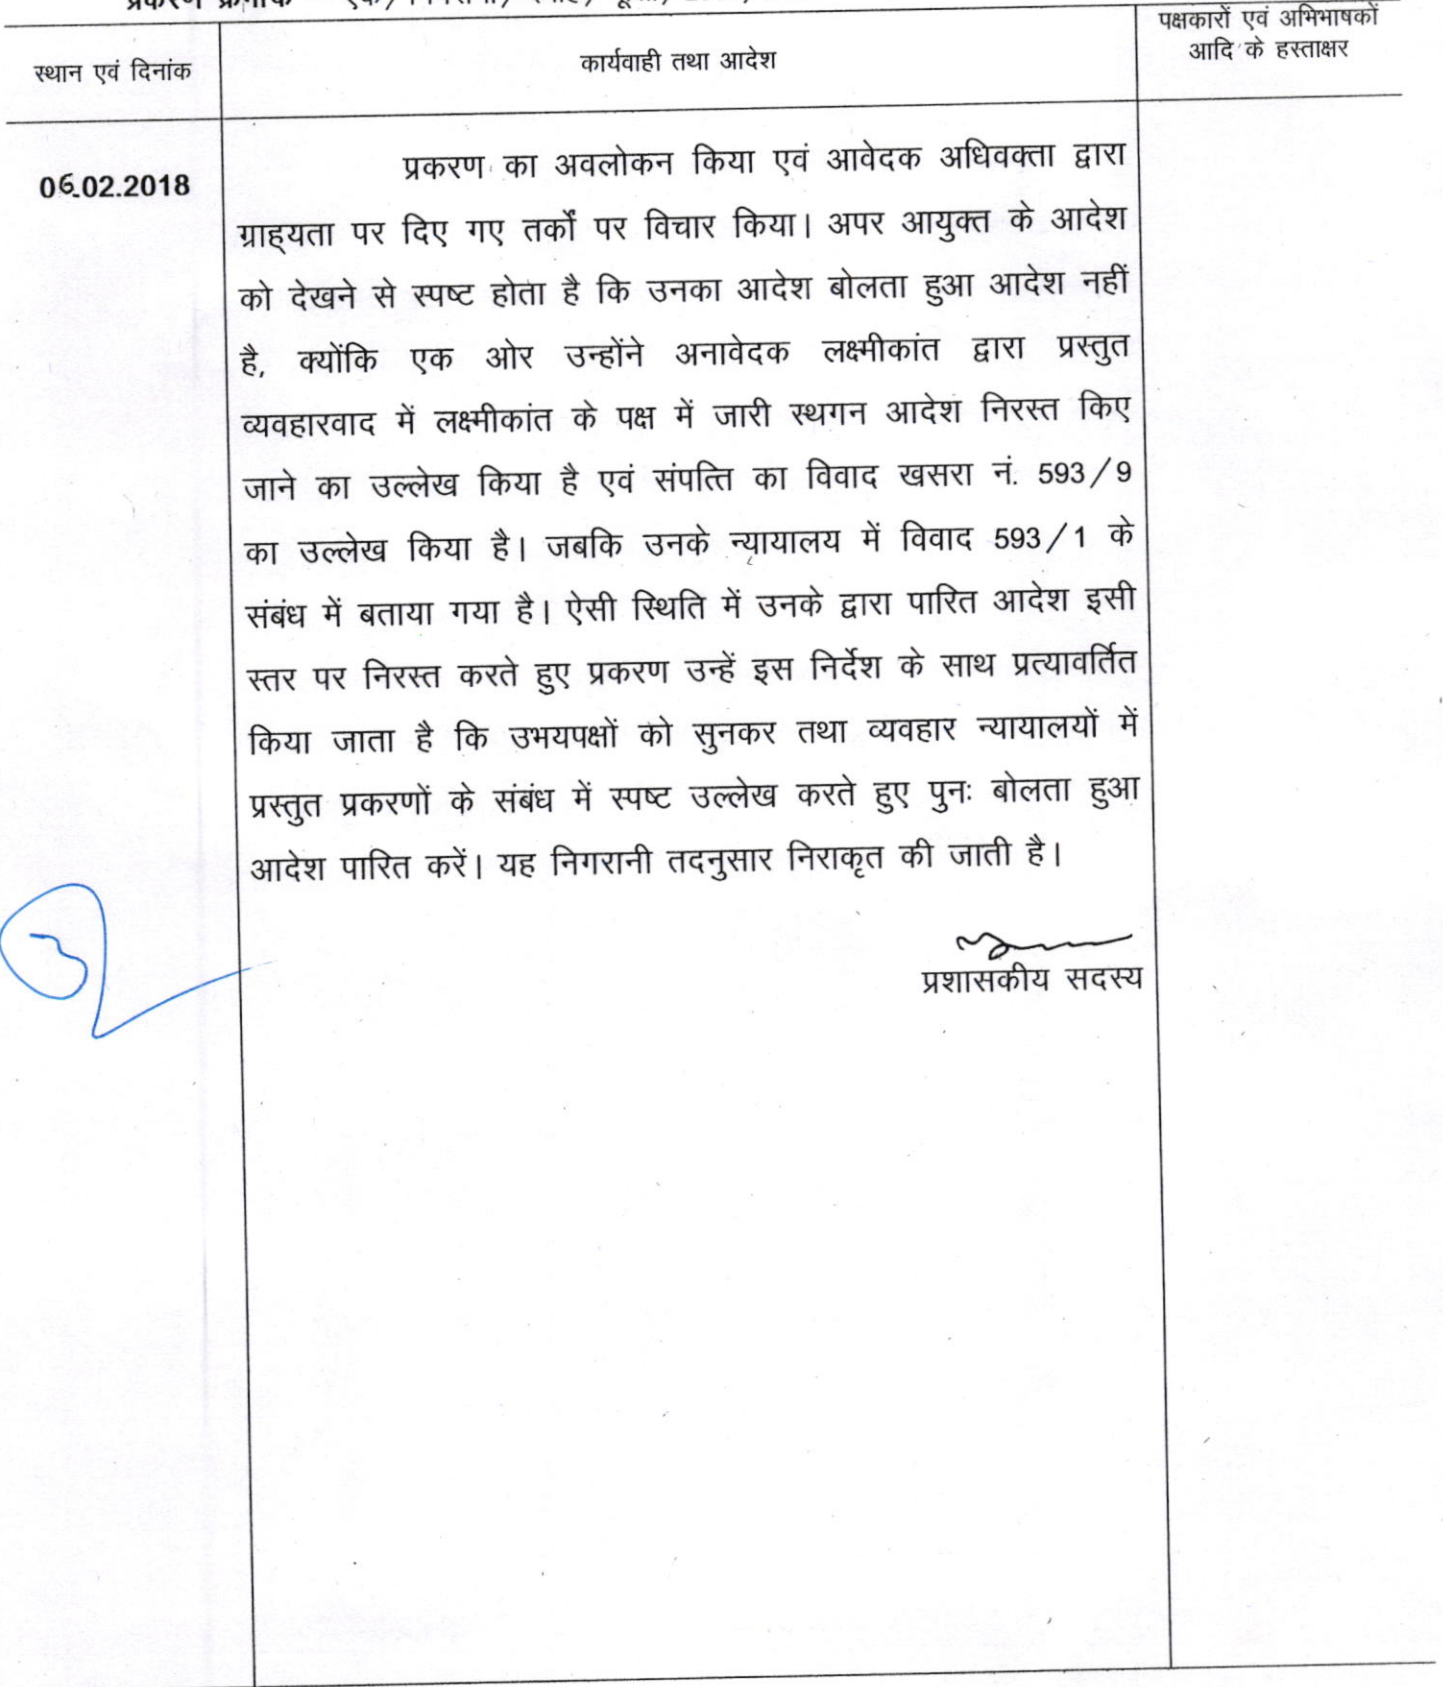 प्रकरण क्रमांक
पक्षकारों एवं अभिभाषकों
आदि के हस्ताक्षर
स्थान एवं दिनांक
कार्यवाही तथा आदेश
06.02.2018
प्रकरण का अवलोकन किया एवं आवेदक अधिवक्ता द्वारा
ग्राह्यता पर दिए गए तर्कों पर विचार किया। अपर आयुक्त के आदेश
को देखने से स्पष्ट होता है कि उनका आदेश बोलता हुआ आदेश नहीं
है, क्योंकि एक ओर उन्होंने अनावेदक लक्ष्मीकांत द्वारा प्रस्तुत
व्यवहारवाद में लक्ष्मीकांत के पक्ष में जारी स्थगन आदेश निरस्त किए
जाने का उल्लेख किया है एवं संपत्ति का विवाद खसरा नं. 593/9
का उल्लेख किया है। जबकि उनके न्यायालय में विवाद 593/1 के
संबंध में बताया गया है। ऐसी स्थिति में उनके द्वारा पारित आदेश इसी
स्तर पर निरस्त करते हुए प्रकरण उन्हें इस निर्देश के साथ प्रत्यावर्तित
किया जाता है कि उभयपक्षों को सुनकर तथा व्यवहार न्यायालयों में
प्रस्तुत प्रकरणों के संबंध में स्पष्ट उल्लेख करते हुए पुनः बोलता हुआ
आदेश पारित करें। यह निगरानी तदनुसार निराकृत की जाती है।
प्रशासकीय सदस्य